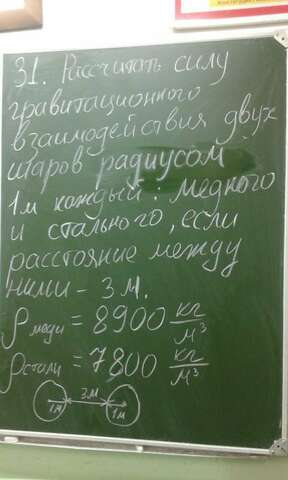 31. Рассчитать силу
гравитационного
взаимодействия двух
шаров радиусом
1м каждый: медного
и стального, если
расстояние между
ними - 3 м.
ρ меди = 8900 кг/м³
ρ стали = 7800 кг/м³
1м 3м 1м